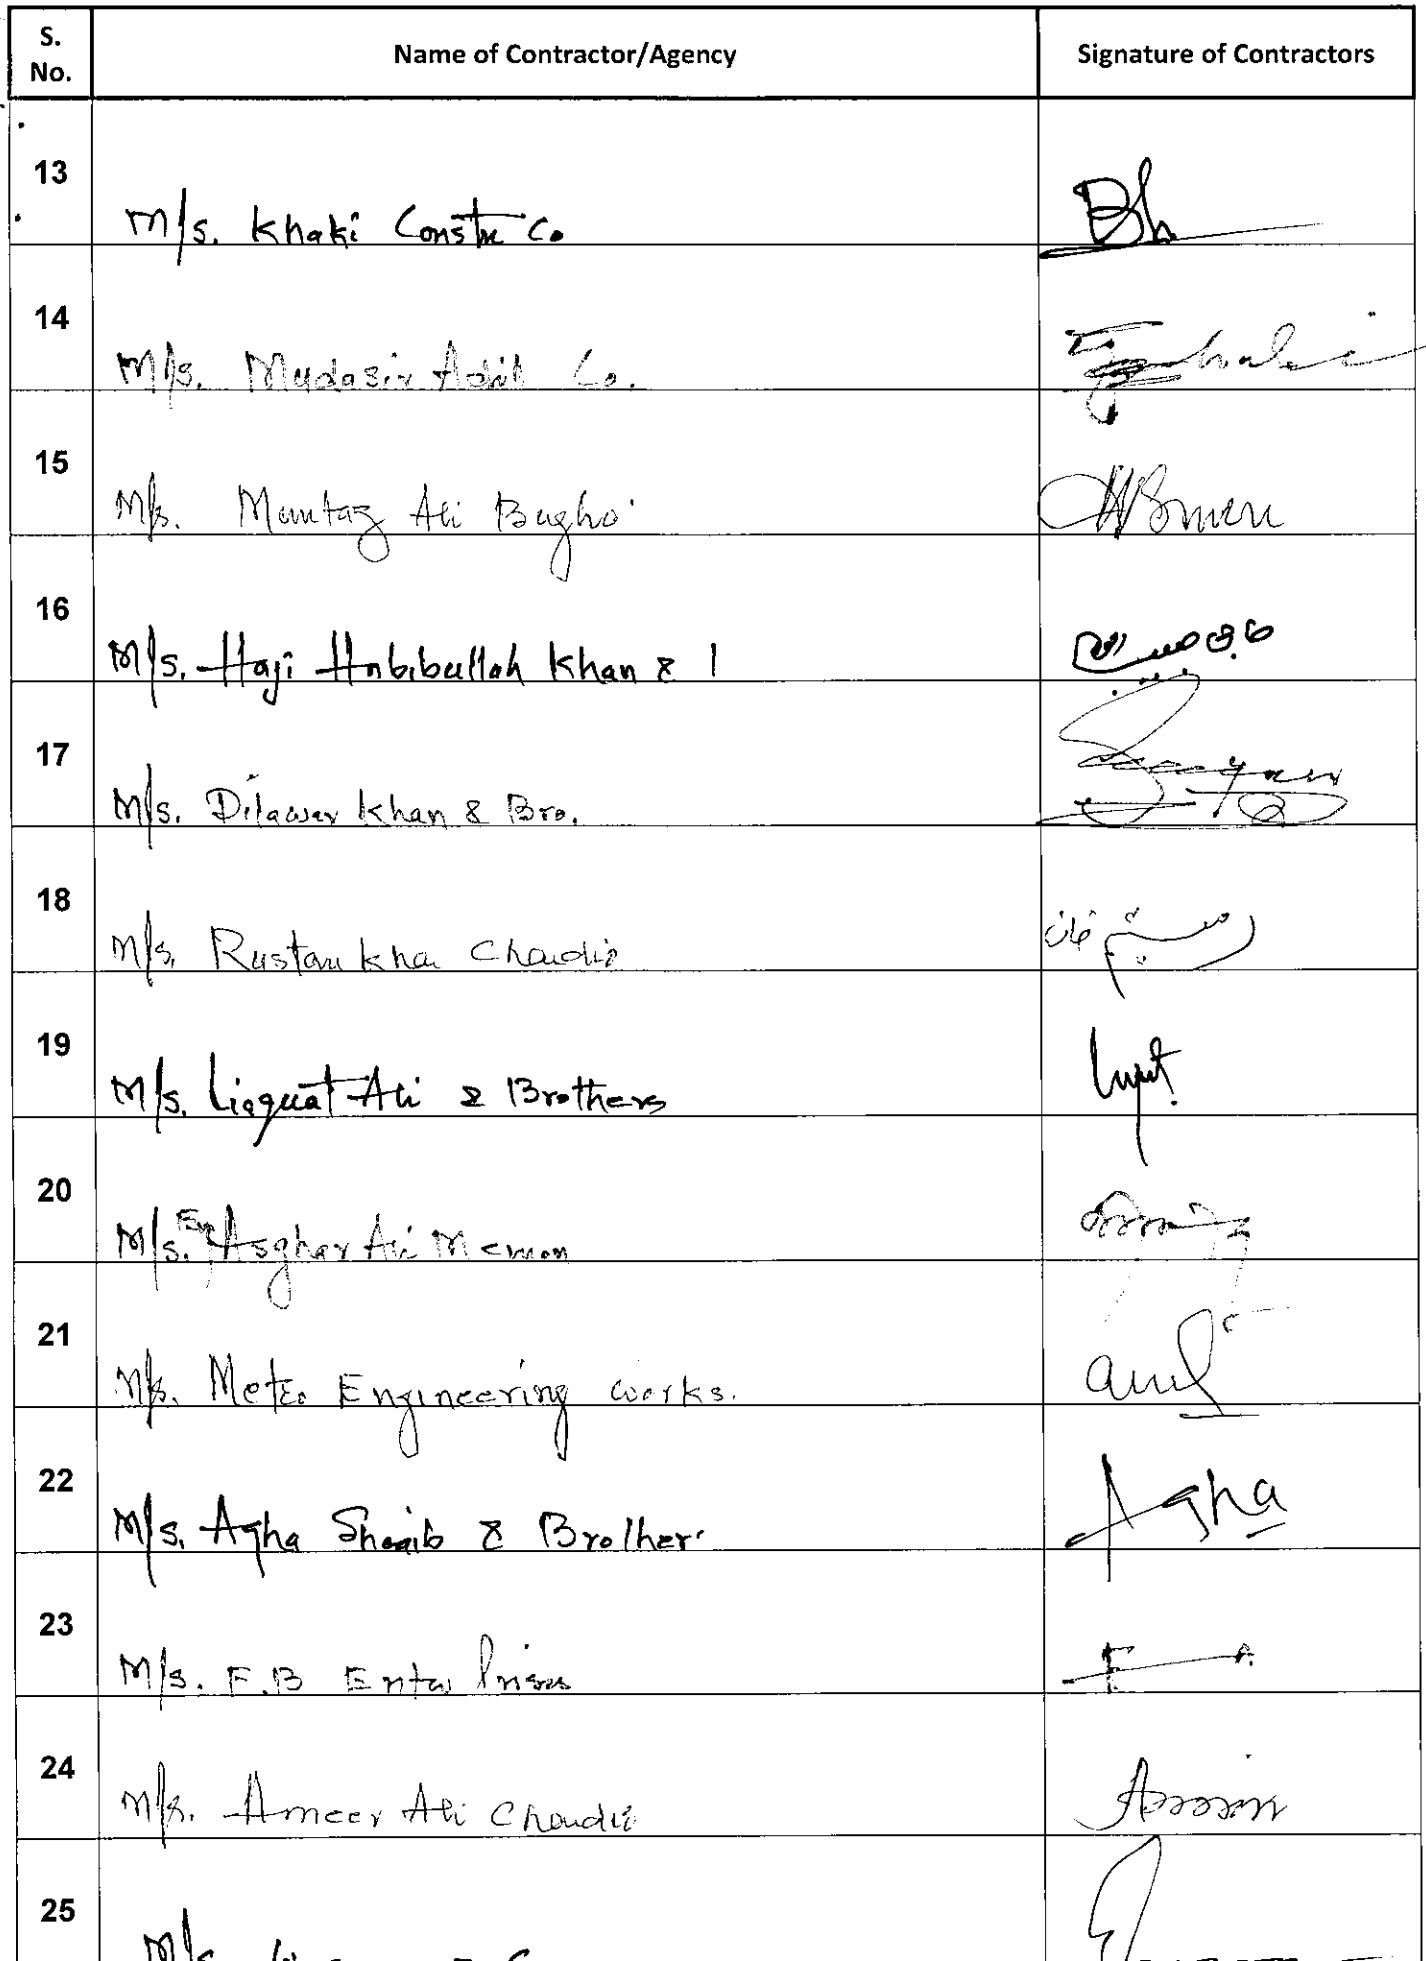 S. No. Name of Contractor/Agency Signature of Contractors
13 M/s. Khaki Constn Co
14 M/s. Mudasir Adil Co.
15 M/s. Mumtaz Ali Bugho
16 M/s. Haji Habibullah Khan & 1
17 M/s. Dilawar Khan & Bro.
18 M/s. Rustam Khan Chandio رستم خان
19 M/s. Liaquat Ali & Brothers
20 M/s. Asghar Ali Memon
21 M/s. Metro Engineering works.
22 M/s. Agha Shoaib & Brother. Agha
23 M/s. F.B Enterprises
24 M/s. Ameer Ali Chandio
25 M/s.